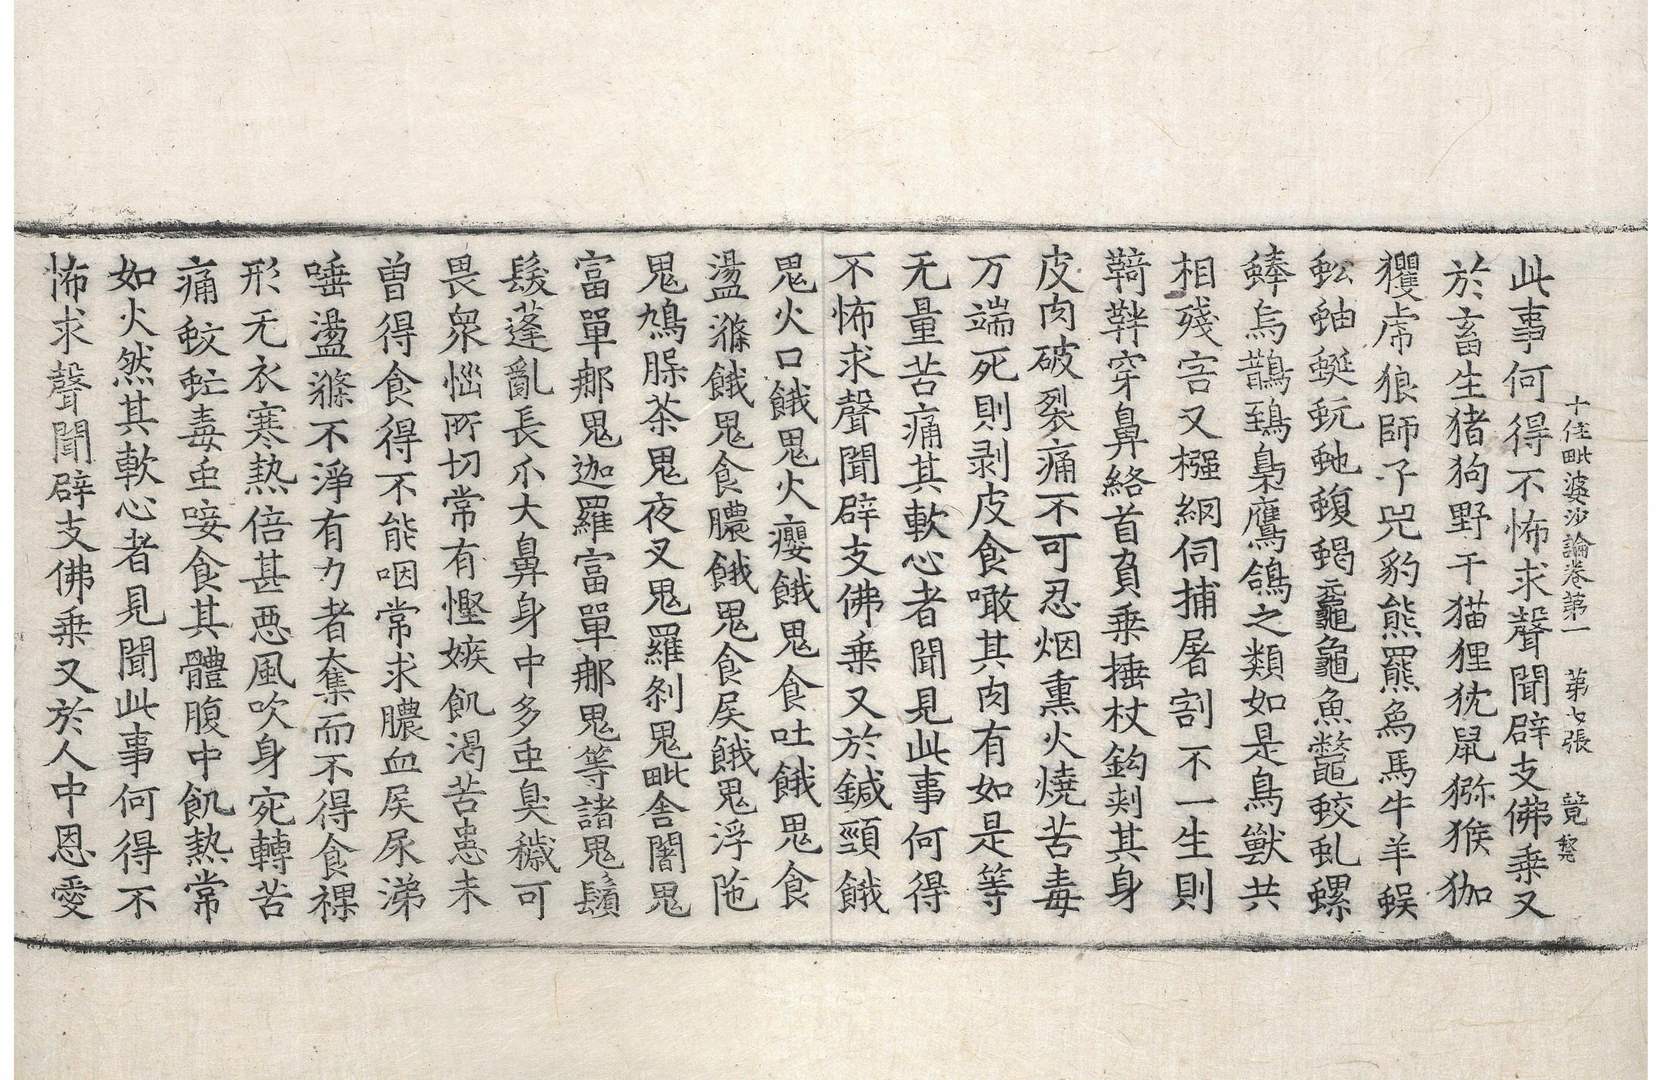 十住毗婆沙論卷第一 第七張 競
此事何得不怖求聲聞辟支佛乗又
於畜生猪狗野干猫狸狖鼠獼猴狐
玃虎狼師子兕豹熊羆鳥馬牛羊蜈
蚣蚰蜒蚖虵蝮蝎黿龜魚鼈蛟虬螺
蜯烏鵲鵄梟鷹鴿之類如是鳥獸共
相殘害又㩉網伺捕屠割不一生則
羇靽穿鼻絡首負乗捶杖鈎刾其身
皮肉破裂痛不可忍烟熏火燒苦毒
万端死則剥皮食噉其肉有如是等
无量苦痛其軟心者聞見此事何得
不怖求聲聞辟支佛乗又於鍼頸餓
鬼火口餓鬼火癭餓鬼食吐餓鬼食
盪滌餓鬼食膿餓鬼食屎餓鬼浮陁
鬼鳩脲茶鬼夜叉鬼羅剎鬼毗舍闍鬼
富單那鬼迦羅富單那鬼等諸鬼鬚
髮蓬亂長爪大鼻身中多虫臭穢可
畏衆惱所切常有慳嫉飢渴苦患未
曽得食得不能咽常求膿血屎尿涕
唾盪滌不淨有力者奪而不得食裸
形无衣寒熱倍甚惡風吹身宛轉苦
痛蚊虻毒虫唼食其體腹中飢熱常
如火然其軟心者見聞此事何得不
怖求聲聞辟支佛乗又於人中恩愛